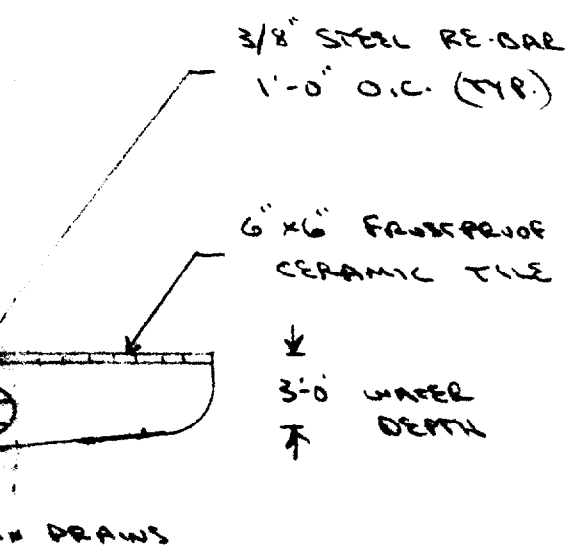 3/8" STEEL RE-BAR
1'-0" O.C. (TYP.)
6" x 6" FROSTPROOF
CERAMIC TILE
3'-0" WATER
DEPTH
DRAINS